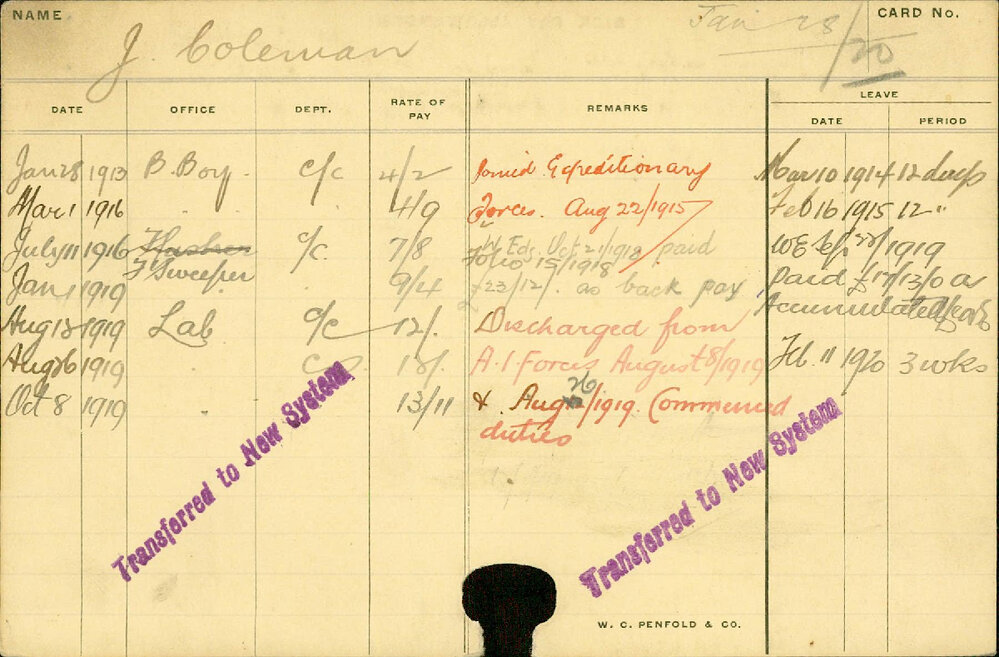 NAME
J. Coleman
Jan 28/20
CARD No.
DATE OFFICE DEPT. RATE OF PAY REMARKS LEAVE DATE PERIOD
Jan 28 1913 B. Boy. c/c 4/2 Joined Expeditionary Mar 10 1914 12 days
Mar 1 1916 4/9 Forces. Aug 22/1915 Feb 16 1915 12 "
July 11 1916 c/c 7/8 Eds. Oct 21/1918 paid WE Sep 1919
F Sweeper Folio 15/1918
Jan 1 1919 9/4 £23/12/. as back pay paid £17/13/0 as
Accumulated
Aug 13 1919 Lab c/c 12/. Discharged from
Aug 26 1919 A.I Forces August 8/1919 Feb. 11 1920 3 wks
Oct 8 1919 13/11 & Aug 26/1919 Commenced
duties
Transferred to New System
Transferred to New System
W. C. PENFOLD & CO.